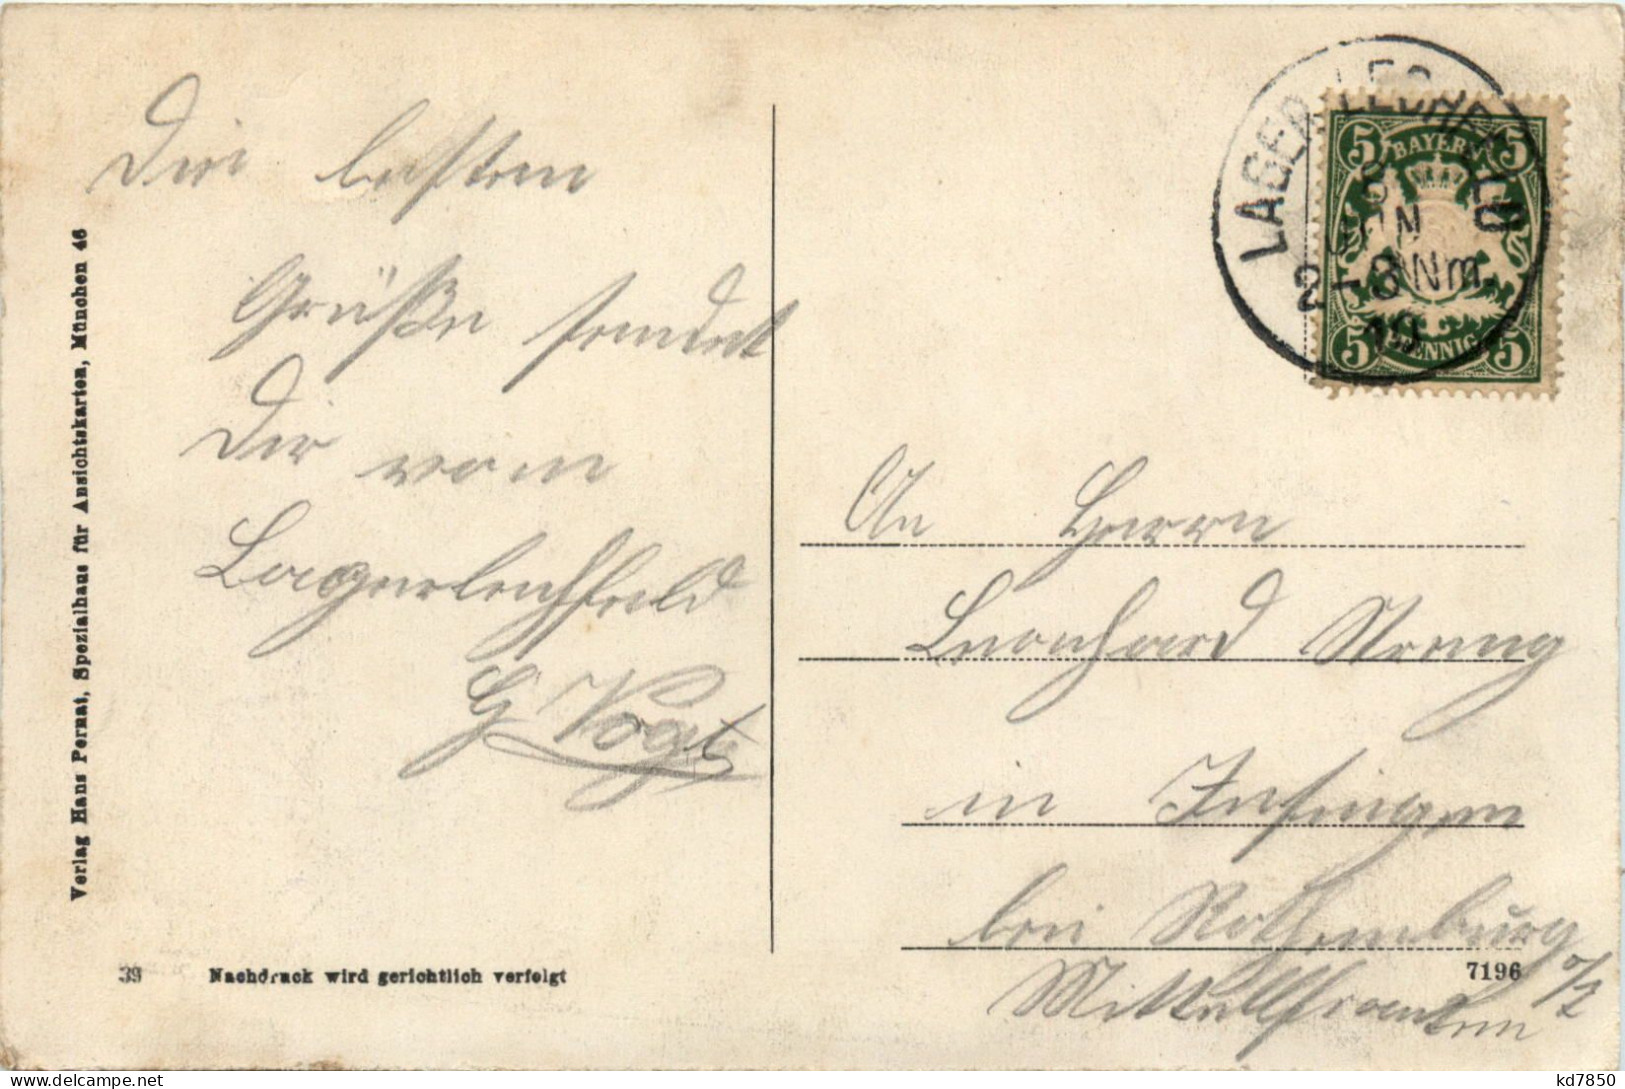 Die besten
Grüße sendet
Dir vom
Lagerlechfeld
G. Vogt
Verlag Hans Pernat, Spezialhaus für Ansichtskarten, München 46
39 Nachdruck wird gerichtlich verfolgt
LAGER LECHFELD
8
JUN
2-3 Nm.
10
5 BAYERN 5
5 PFENNIG 5
An Herrn
Leonhard
in Insingen
bei Rothenburg
o/T
7196
Mittelfranken
kd7850